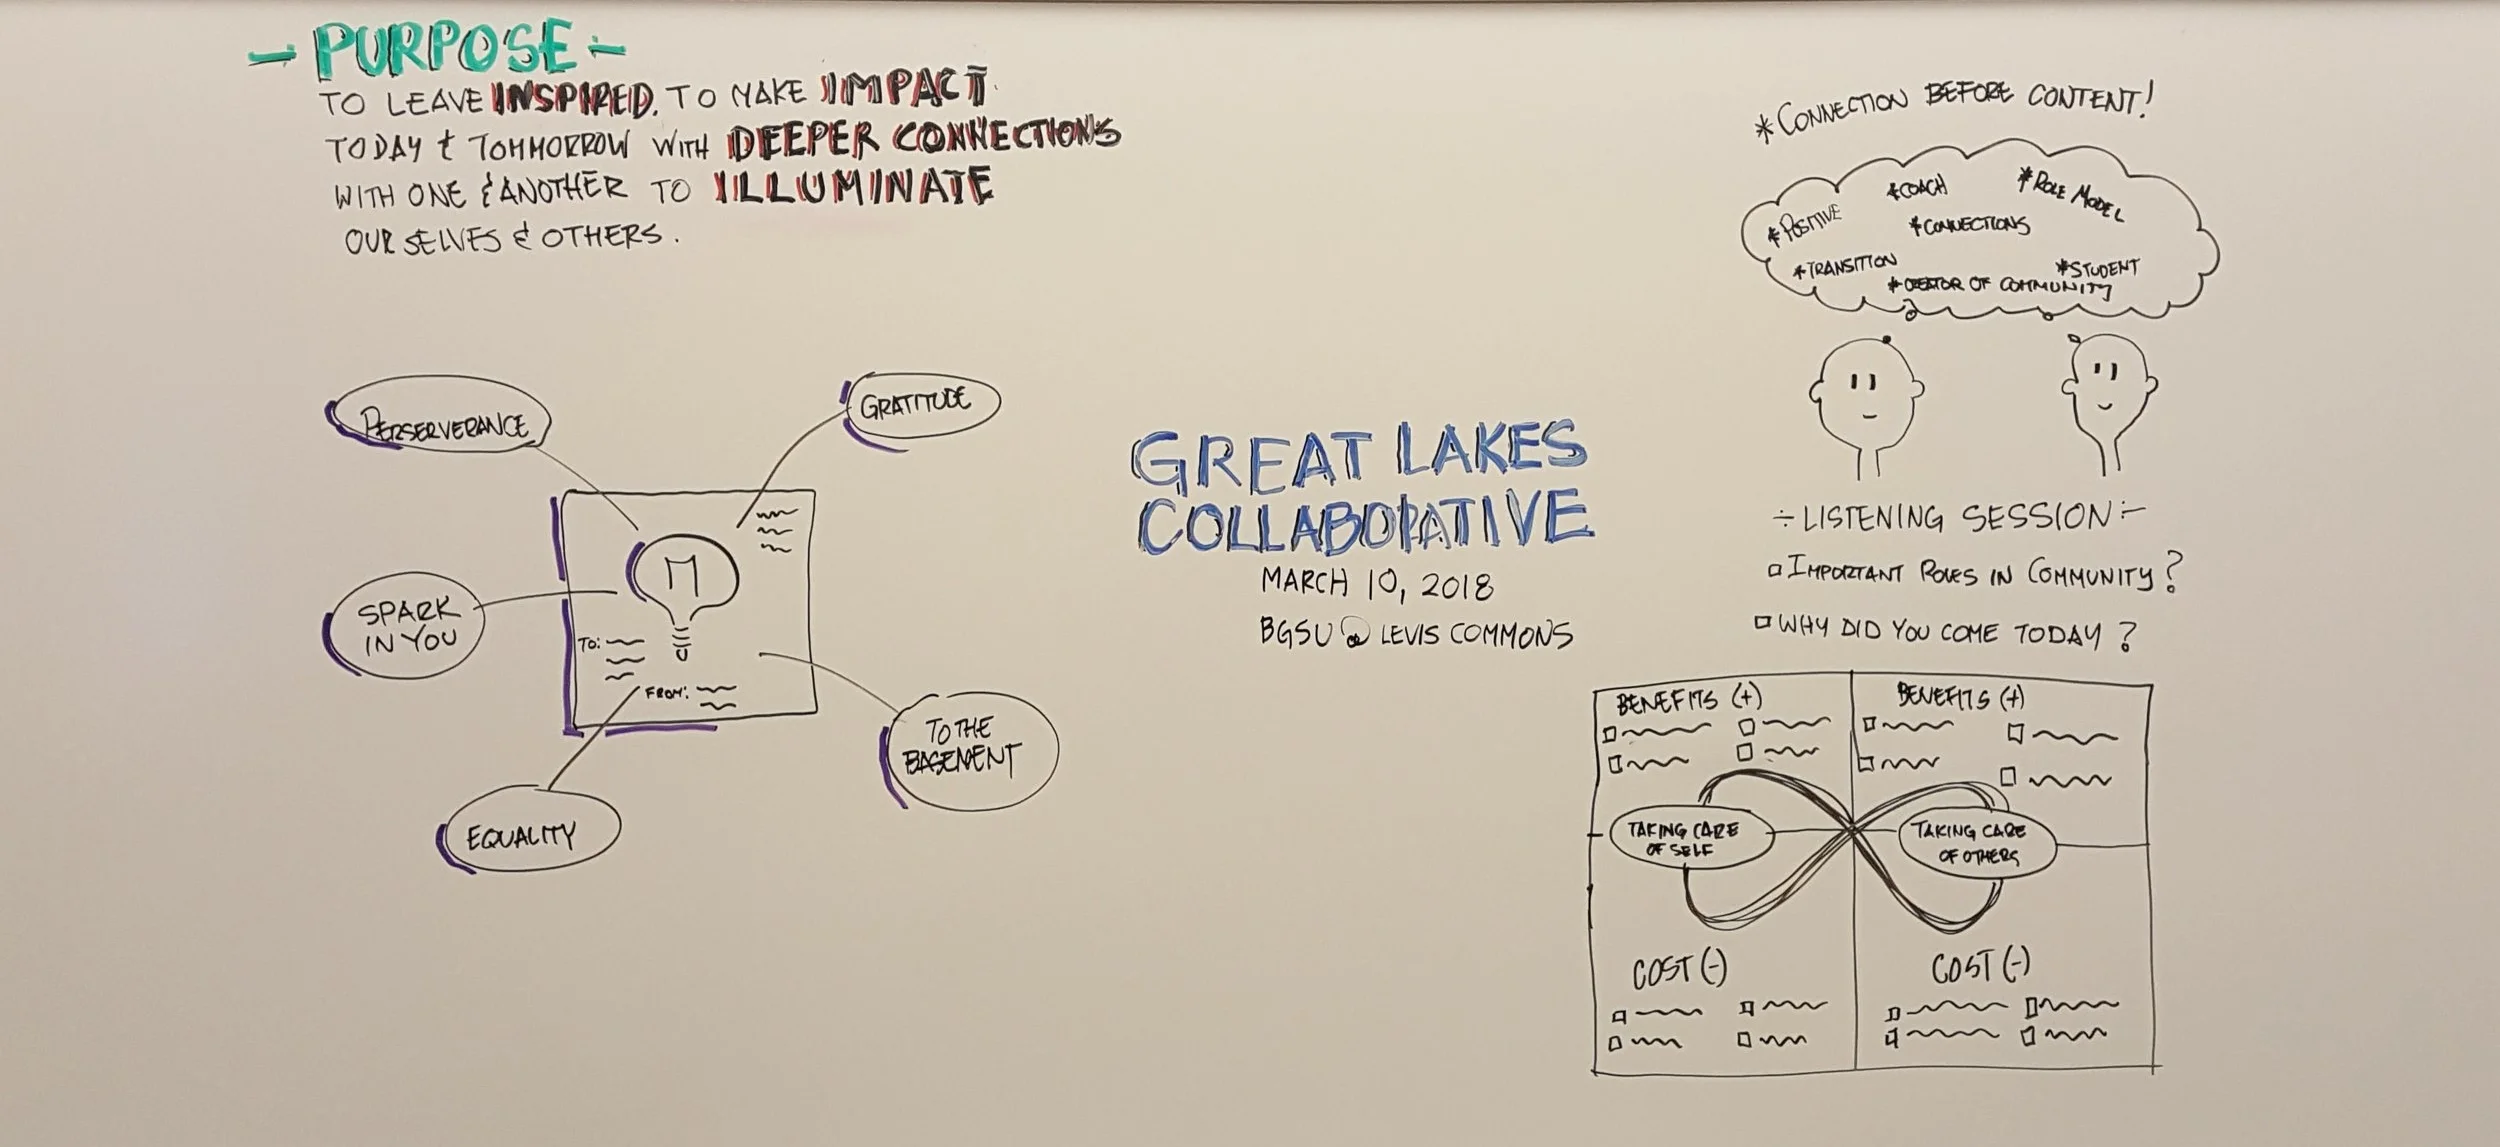 - PURPOSE -
TO LEAVE INSPIRED. TO MAKE IMPACT
TODAY & TOMMORROW WITH DEEPER CONNECTIONS
WITH ONE & ANOTHER TO ILLUMINATE
OUR SELVES & OTHERS.
PERSERVERANCE
GRATITUDE
SPARK
IN YOU
TO:
FROM:
TO THE
BASEMENT
EQUALITY
GREAT LAKES
COLLABORATIVE
MARCH 10, 2018
BGSU @ LEVIS COMMONS
*CONNECTION BEFORE CONTENT!
*COACH
*ROLE MODEL
*POSITIVE
*CONNECTIONS
*TRANSITION
*STUDENT
*CREATOR OF COMMUNITY
÷ LISTENING SESSION ÷
▫ IMPORTANT ROLES IN COMMUNITY?
▫ WHY DID YOU COME TODAY?
BENEFITS (+)
BENEFITS (+)
TAKING CARE
OF SELF
TAKING CARE
OF OTHERS
COST (-)
COST (-)